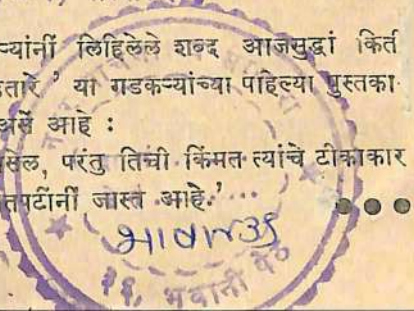 ऱ्यांनीं लिहिलेले शब्द आजसुद्धां किर्त
तारे ' या गडकऱ्यांच्या पाहिल्या पुस्तका
असें आहे :
सल, परंतु तिची किंमत त्यांचे टीकाकार
तपटींनीं जास्त आहे.'
११, भवानी पेठ